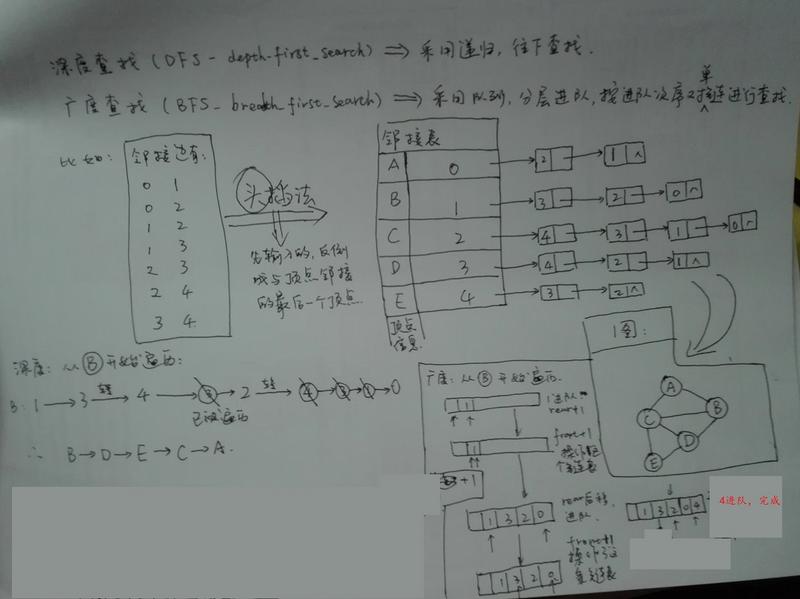 深度查找(DFS - depth_first_search) ⇒ 采用递归,往下查找.
广度查找(BFS - breadth_first_search) ⇒ 采用队列,分层进队,按进队次序对单链进行查找.
比如:
邻接边有:
0 1
0 2
1 2
1 3
2 3
2 4
3 4
头插法
先输入的,反倒
成与顶点邻接
的最后一个顶点
邻接表
A 0 → 2 → 1 ^
B 1 → 3 → 2 → 0 ^
C 2 → 4 → 3 → 1 → 0 ^
D 3 → 4 → 2 → 1 ^
E 4 → 3 → 2 ^
顶点
信息
图:
A
C B
D
E
深度:从B开始遍历:
B: 1 → 3 → 4 → 3 → 2 → 4 → 3 → 1 → 0
已被遍历
∴ B→D→E→C→A.
广度:从B开始遍历.
1
1进队
rear+1
1
front+1
+1
1 3 2 0
rear后移,
进队.
1 3 2 0 4
4进队,完成
1 3 2 0
front+1